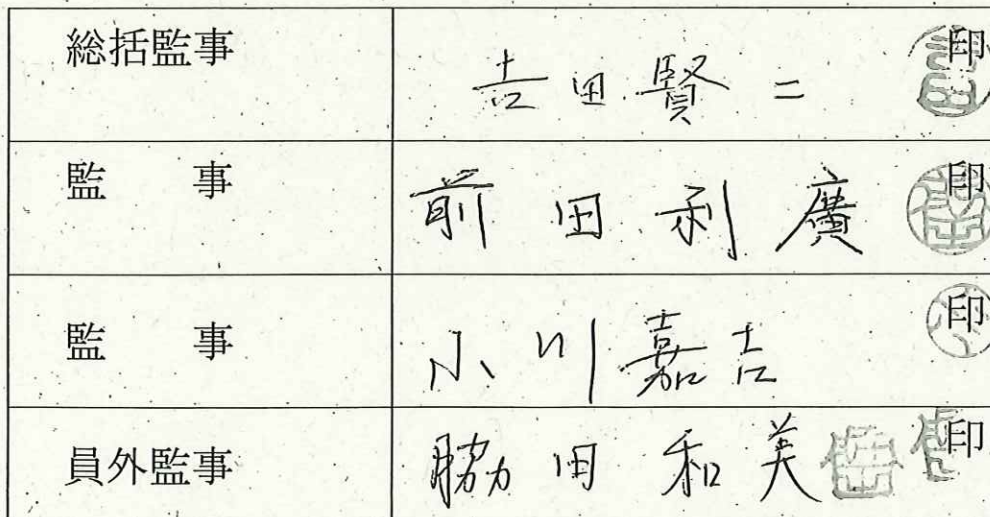 総括監事 吉田賢二 印
監事 前田利廣 印
監事 小川嘉吉 印
員外監事 脇田和美 印